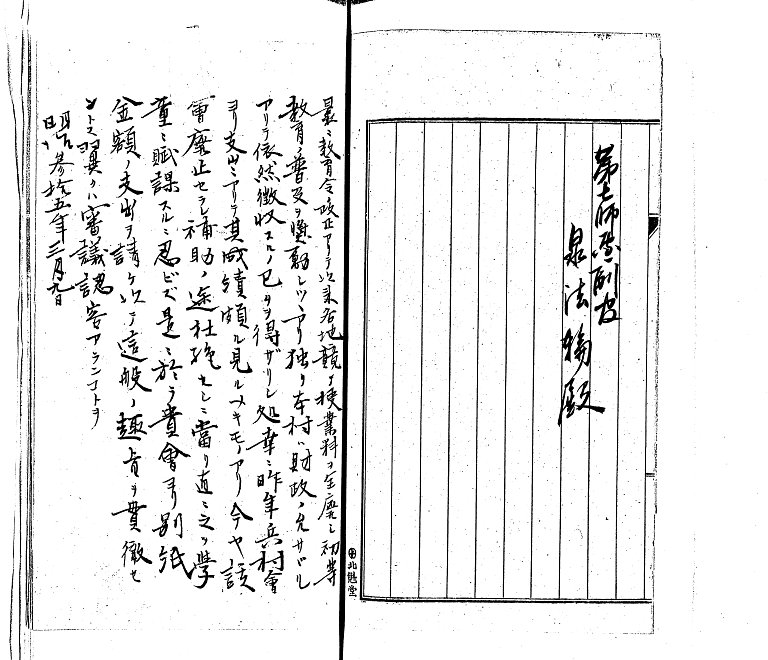 第七師団司
泉法橋殿
曩ニ教育令改正アリテ以来各地競テ授業料ヲ全廃シ初等
教育ノ普及ヲ奨励シツヽアリ独リ本村ハ財政ノ允サヾル
アリテ依然徴収スルノ已ムヲ得ザリシ処幸ニ昨年兵村會
ヨリ支出ニアリテ其成績頗ル見ルベキモノアリ今ヤ該
會廃止セラレ補助ノ途杜絶セシニ當リ直ニ之ヲ學
童ニ賦課スルニ忍ビズ是ニ於テ貴會ヨリ別紙
金額ノ支出ヲ請ケ以テ這般ノ趣旨ヲ貫徹セ
ントス翼クハ審議認容アランコトヲ
明、参拾五年三月九日
北勉堂